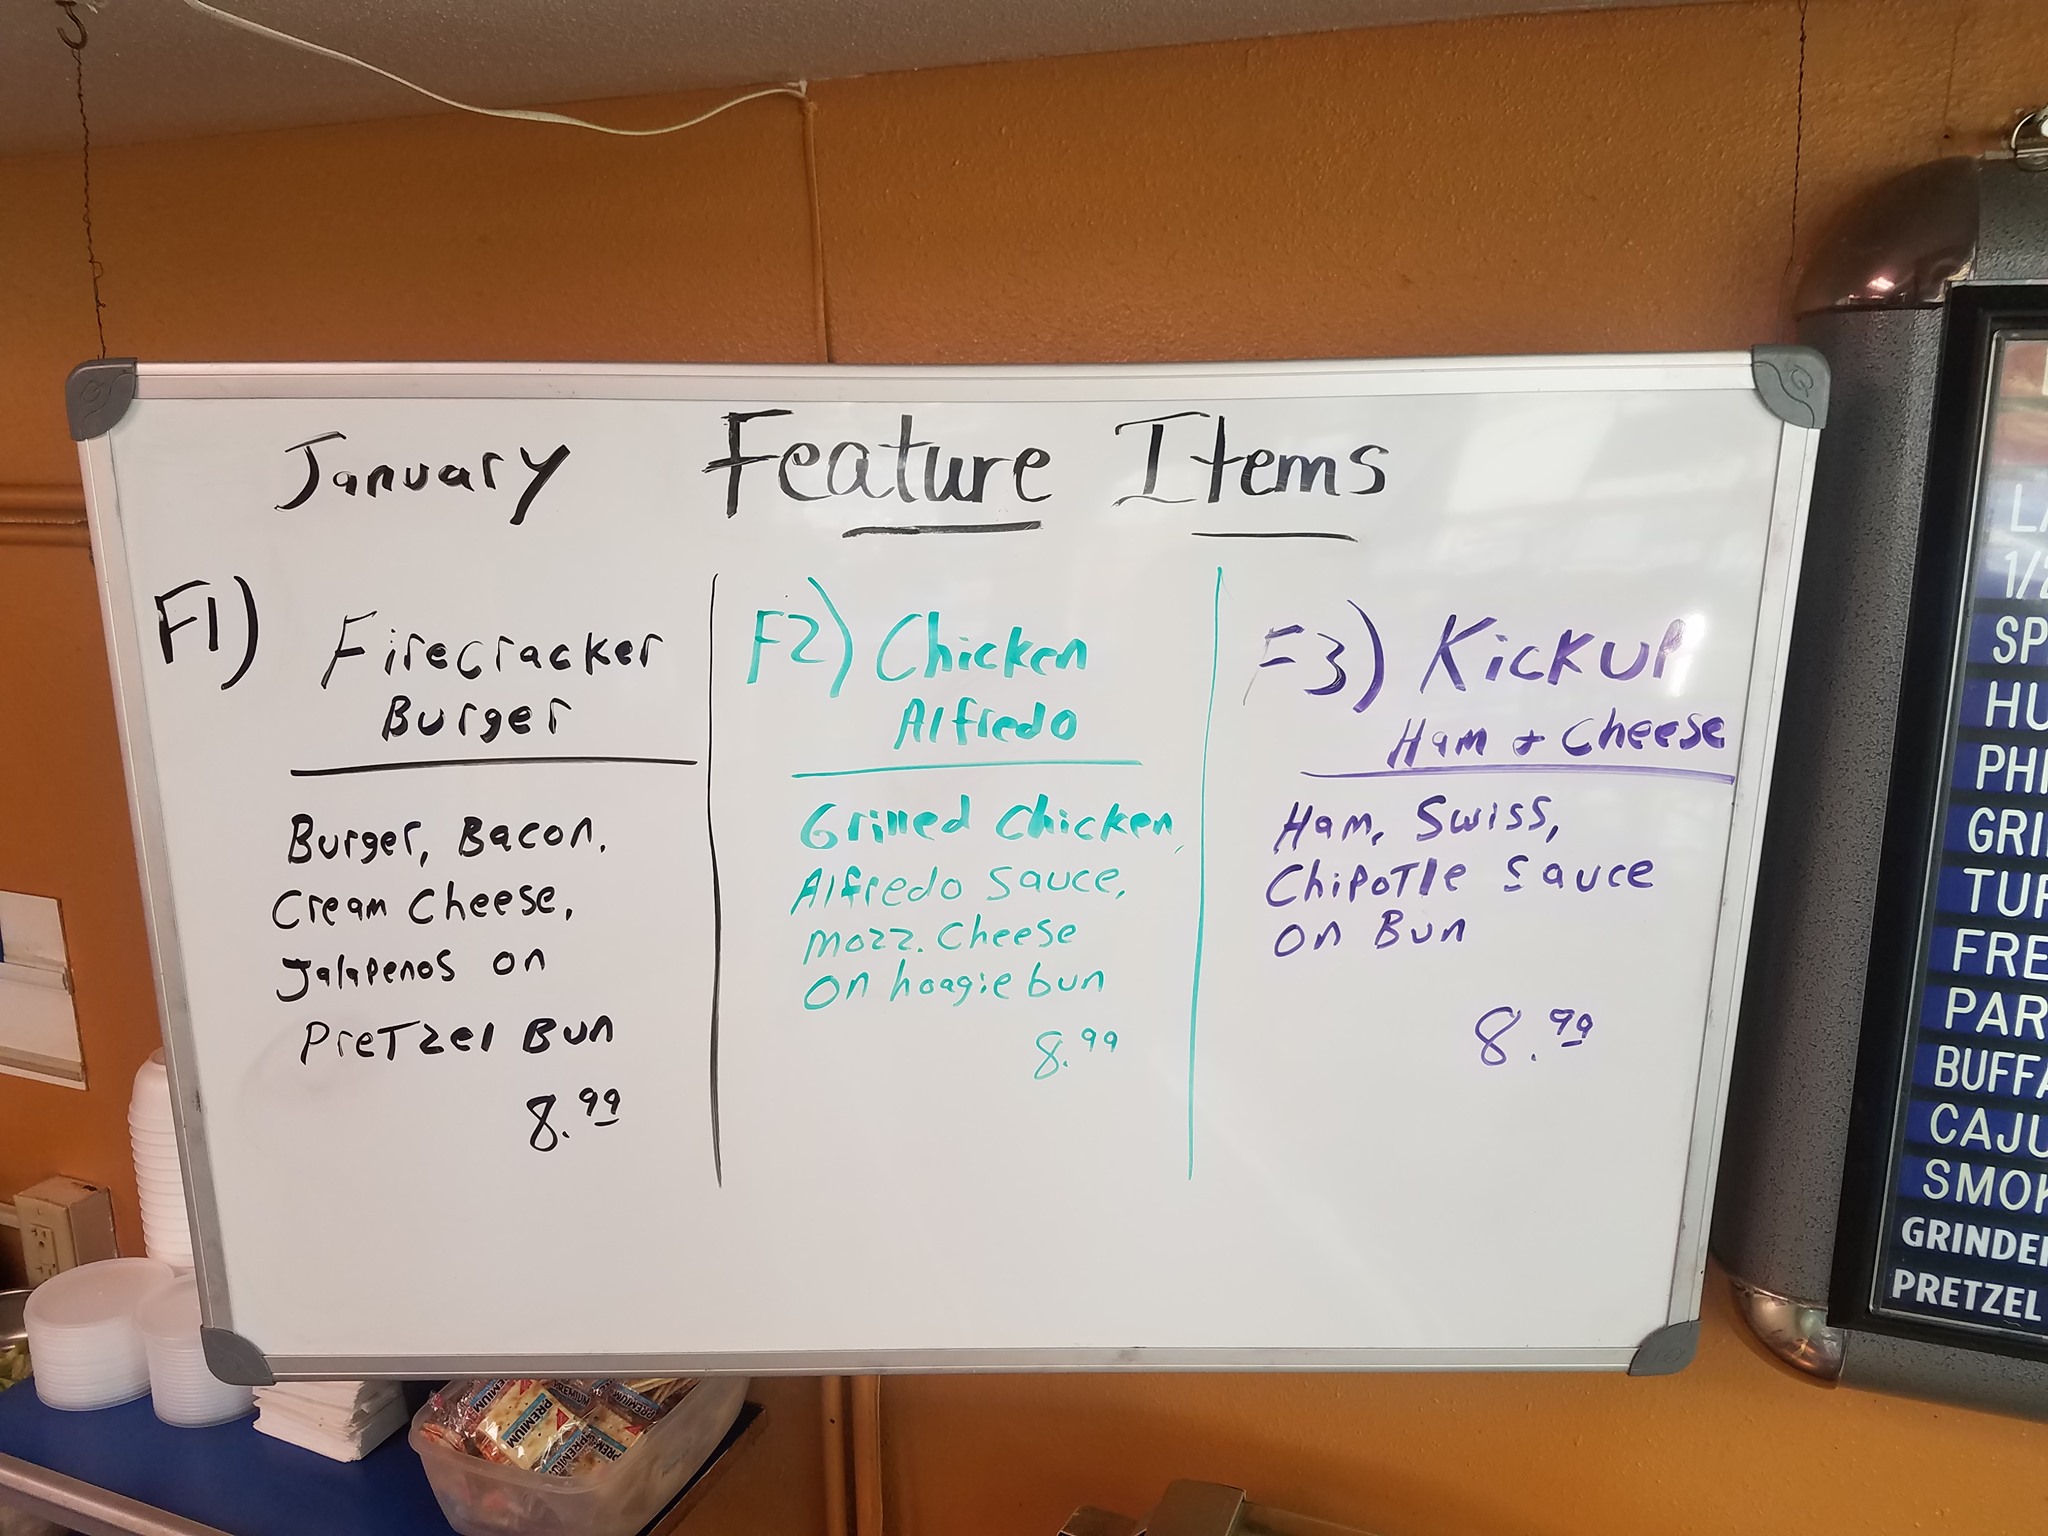 January Feature Items
F1) Firecracker
Burger
Burger, Bacon,
Cream Cheese,
Jalapenos on
Pretzel Bun
8.99
F2) Chicken
Alfredo
Grilled Chicken,
Alfredo Sauce,
Mozz. Cheese
on hoagie bun
8.99
F3) Kickup
Ham + Cheese
Ham, Swiss,
Chipotle Sauce
on Bun
8.99
SP
HU
PHI
GRI
TUR
FRE
PAR
BUFFA
CAJU
SMOK
GRINDER
PRETZEL
PREMIUM
PREMIUM
PREMIUM